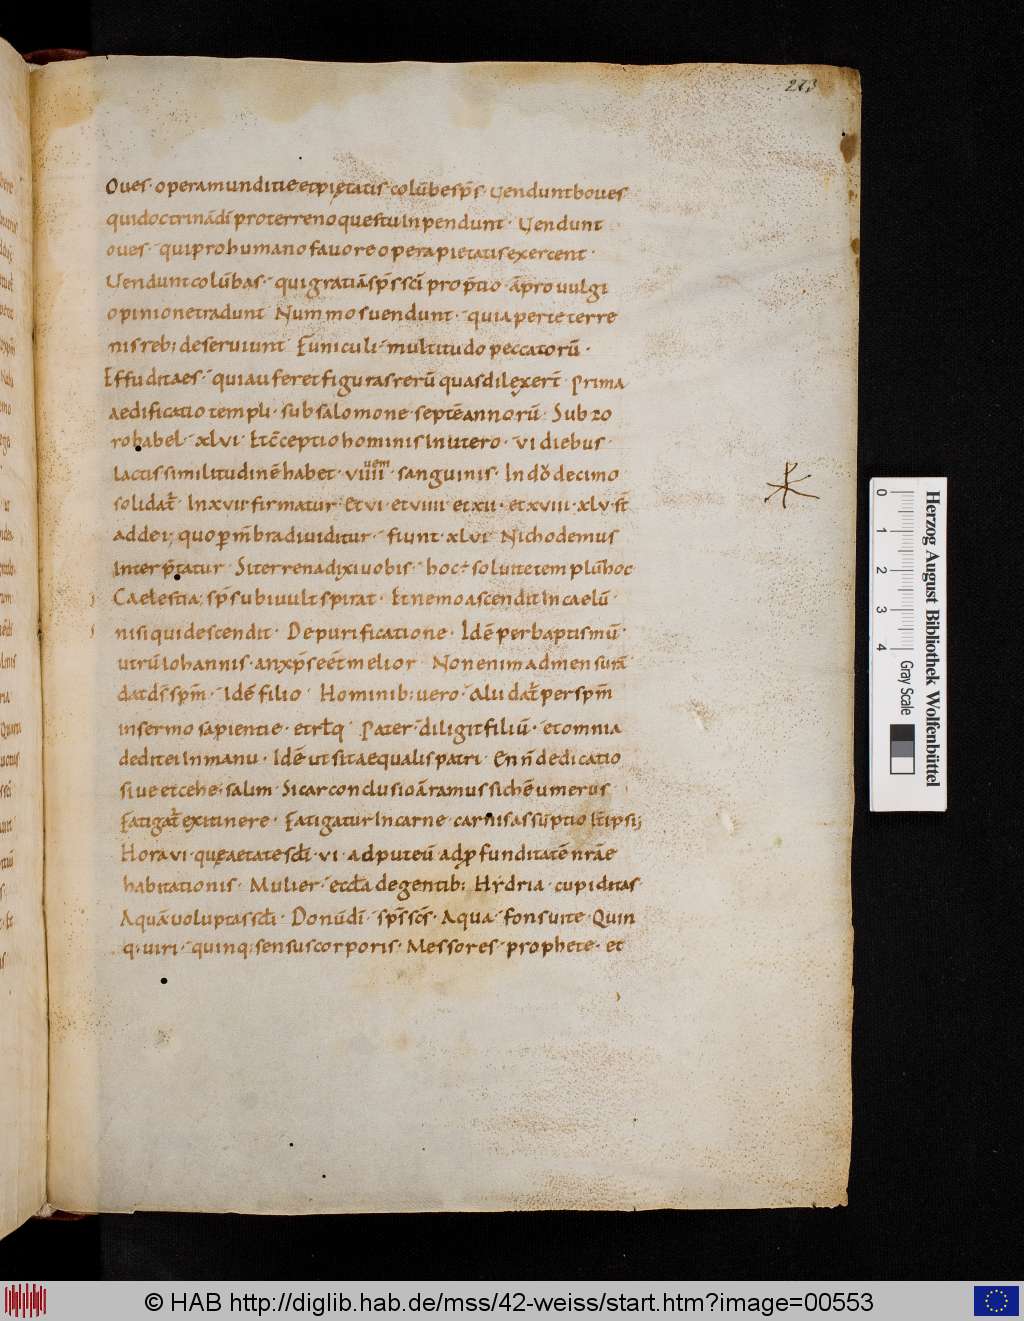 273
Oues · opera munditiẹ et pietatis · colūbe sp̄s · Uendunt boues
qui doctrinā dī pro terreno questu inpendunt · Uendunt
oues · qui pro humano fauore opera pietatis exercent ·
Uendunt colūbas · qui gratiā sp̄s sc̄i pro p̄tio · a᷆ pro uulgi
opinione tradunt Nummos uendunt · qui aperte terre
nis reb; deseruiunt Funiculi · multitudo peccatorū ·
Effudit aes · quia uferet figuras rerū quas dilexer̄t · Prima
aedificatio templi · sub salomone · septē annorū · Sub zo
robabel · xlvi · Et c̄ceptio hominis in utero · vi diebus ·
lactis similitudinē habet · viiii · sanguinis · In dodecimo
solidat̄ · In xvii · firmatur · Et vi · et viiii · et xii · et xviii · xlv · st̄
adde i; quo p m̄bra diuiditur · fiunt · xlvi · Nichodemus
interp̄tatur Si terrena dixi uobis · hoc ÷ soluite templū hoc
Caelestia; sp̄s ubi uult spirat · Et nemo ascendit in caelū ·
nisi qui descendit · De purificatione · Idē per baptismū ·
utrū iohannis · an xp̄s eēt melior Non enim ad mensurā
dat d̄s sp̄m · Idē filio Hominib; uero · Alii dat̄ per sp̄m
in sermo sapientie · et rl̄q Pater · diligit filiū · et omnia
dedit ei in manu · Idē ut sit aequalis patri · En n̄ dedicatio
siue etcehe; salim · Sicar conclusio ā ramus sichē umerus
Fatigat̄ ex itinere · Fatigatur in carne · carnis assūptio
Hora vi · que aetate sc̄li · vi · ad puteū ad p̱funditatē nr̄ae
habitationis · Mulier · eccl̄a de gentib; Hydria · cupiditas
Aquā uoluptas sc̄li · Donū dī · sp̄s sc̄s · Aqua · fons uite · Quin
q; uiri · quinq; sensus corporis · Messores · prophete · et
Herzog August Bibliothek Wolfenbüttel
0 1 2 3 4 Gray Scale
© HAB http://diglib.hab.de/mss/42-weiss/start.htm?image=00553